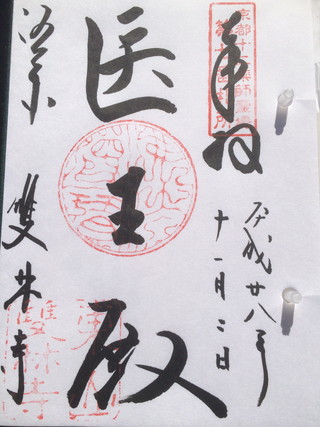 奉拝
京都十二薬師霊場
平成廿八年
十一月二日
医王殿
洛東
雙林寺
雙林寺